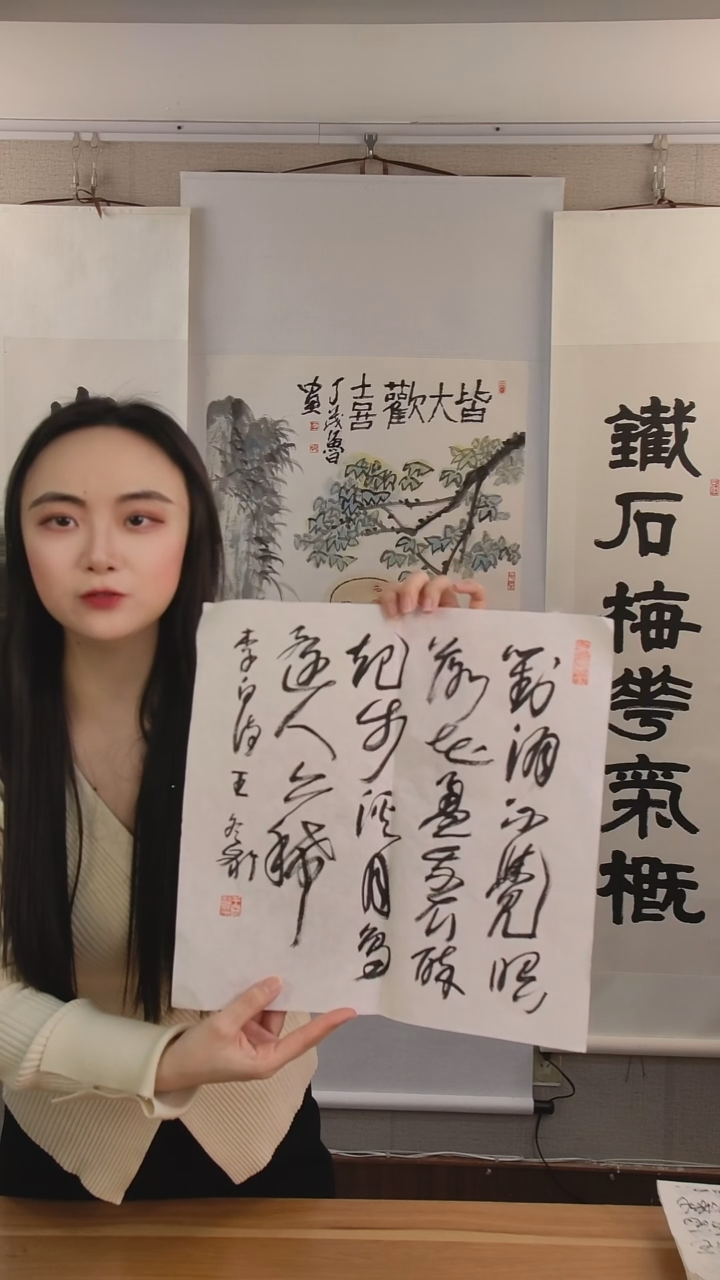 皆大歡喜
丁茂魯
畫
鐵石梅華氣概
對酒不覺暝
落花盈我衣醉
起步溪月鳥
還人亦稀
李白诗王冬